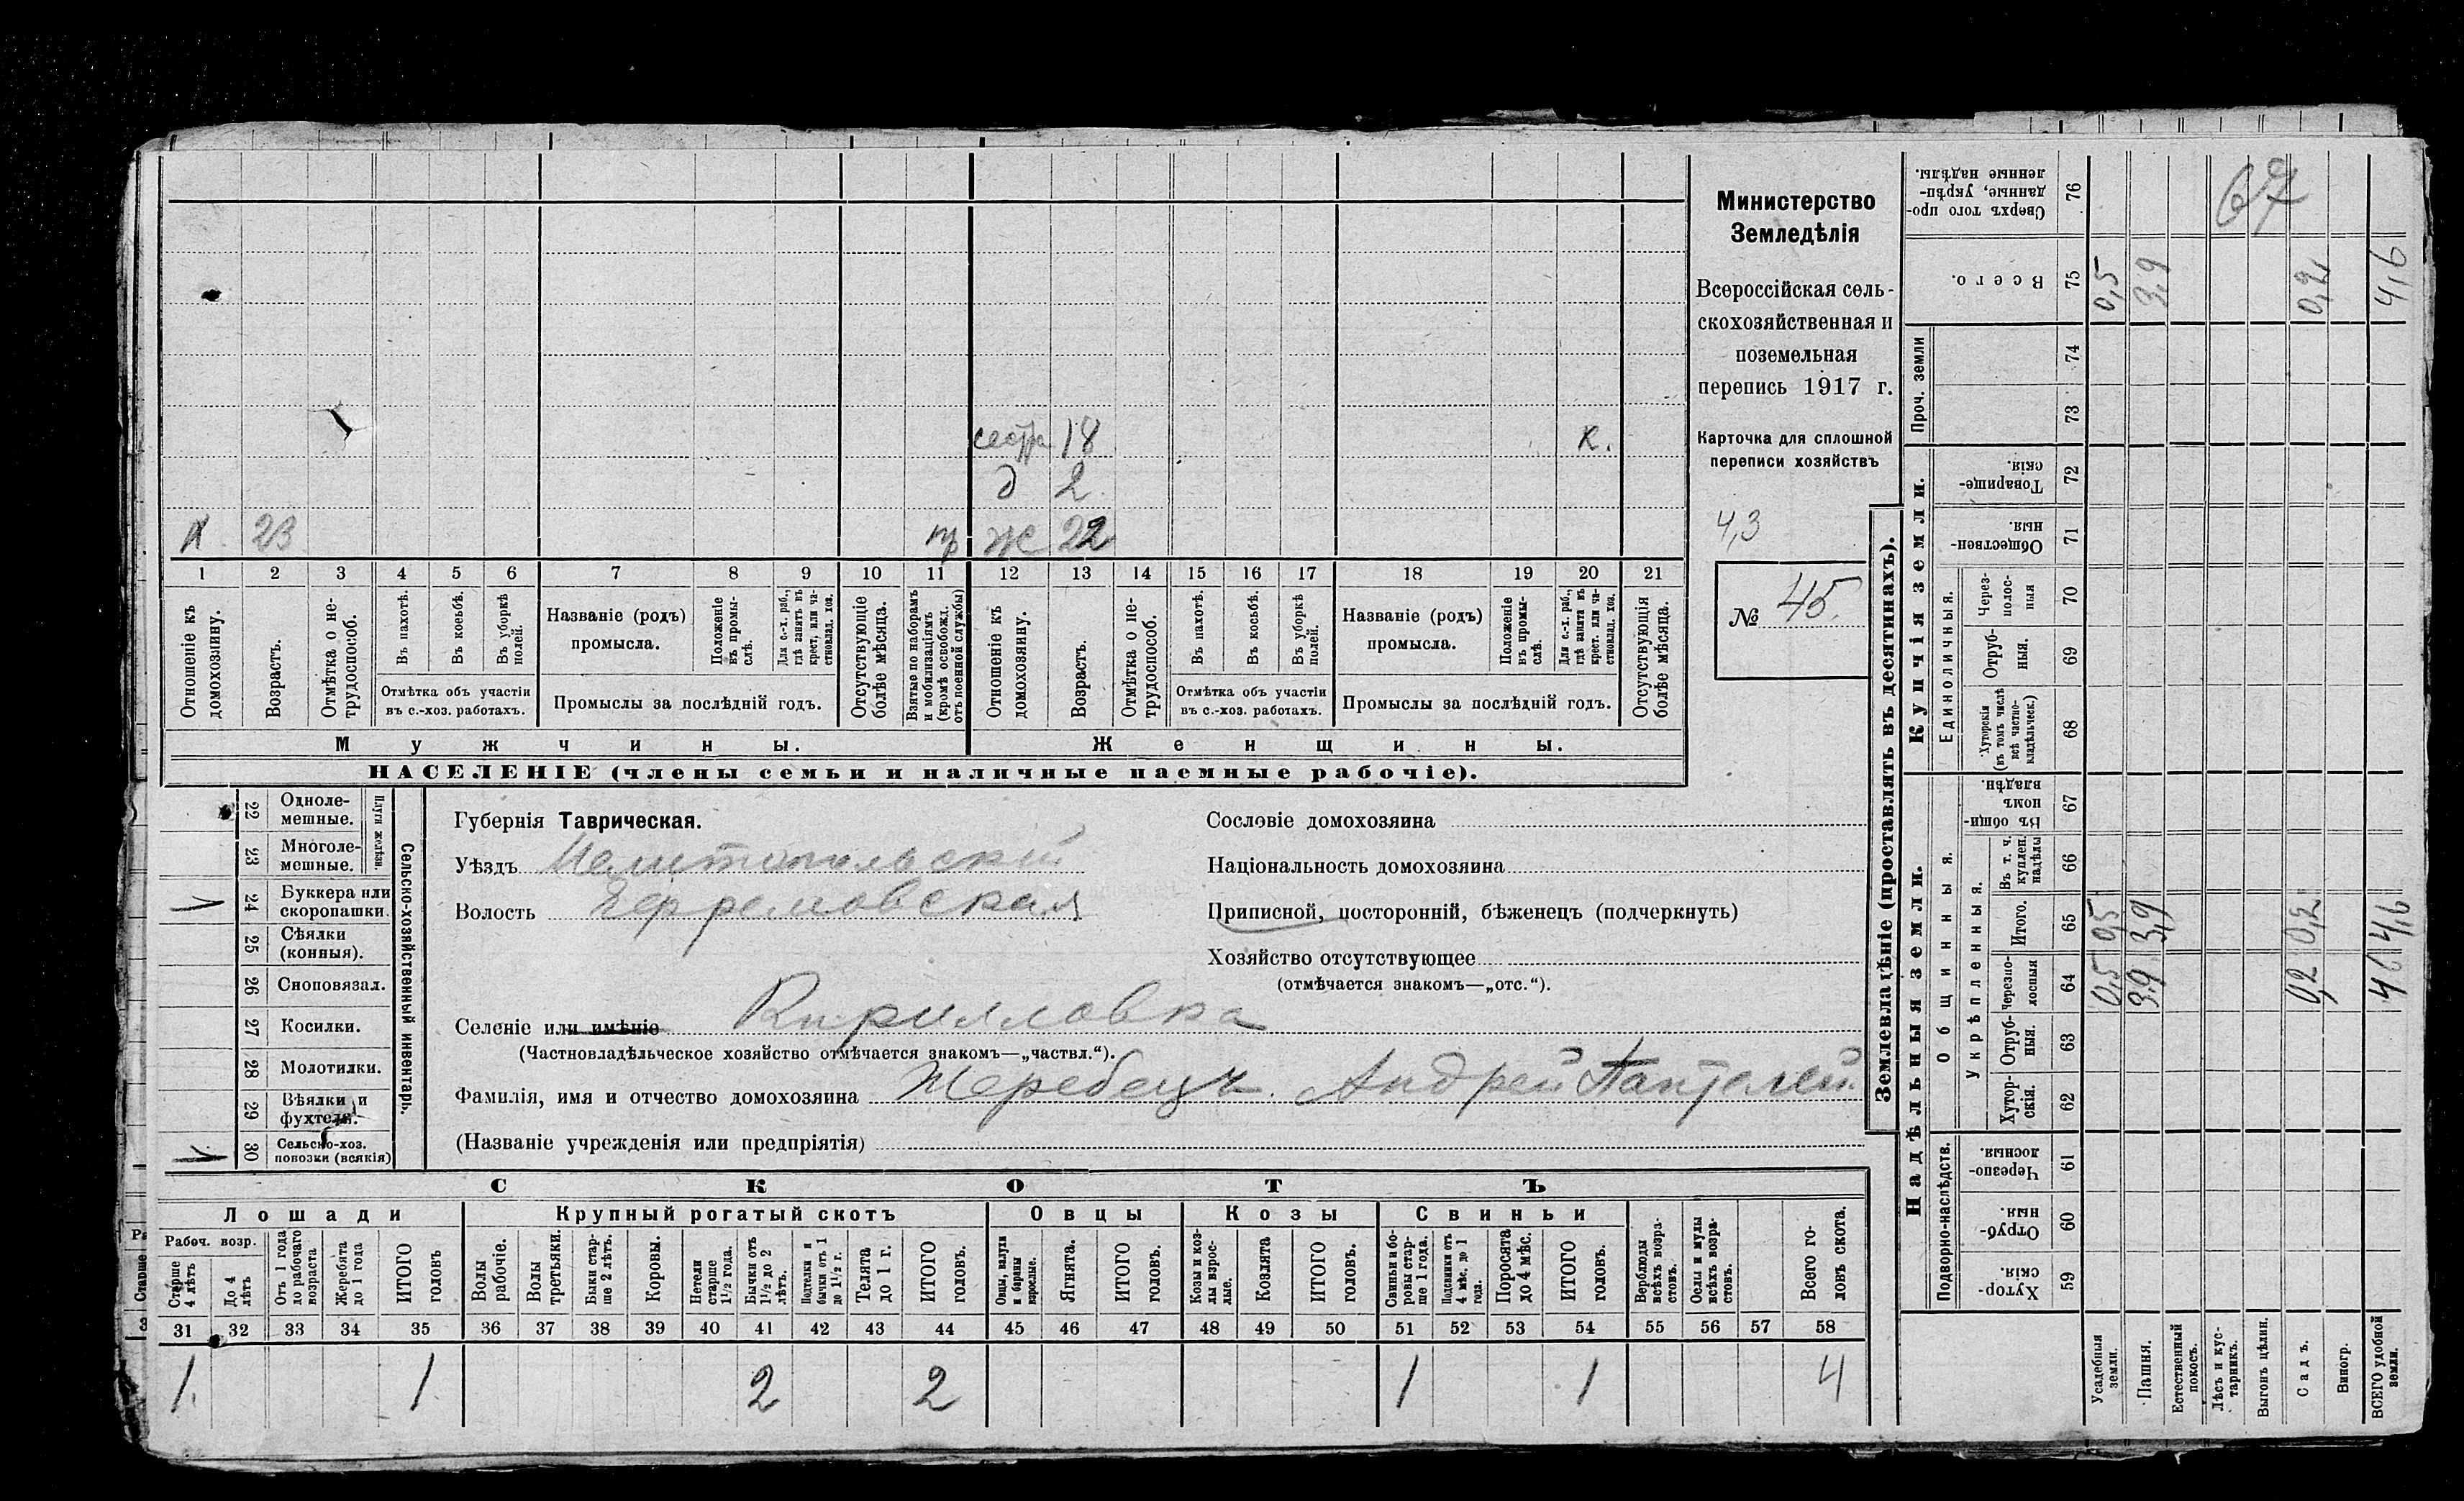 сестра 18 к.
д 2
х 23 пр ж 22
1 2 3 4 5 6 7 8 9 10 11 12 13 14 15 16 17 18 19 20 21
Отношеніе къ домохозяину.
Возрастъ.
Отмѣтка о не-
трудоспособ.
Въ пахотѣ.
Въ косьбѣ.
Въ уборкѣ полей.
Отмѣтка объ участіи
въ с.-хоз. работахъ.
Названіе (родъ)
промысла.
Положеніе въ промы-
слѣ.
Для с.-х. раб., гдѣ занятъ въ крест. или ча-
стновлад. хоз.
Промыслы за послѣдній годъ.
Отсутствующіе болѣе мѣсяца.
Взятые по наборамъ и мобилизаціямъ (кромѣ освобожд. отъ военной службы)
Отношеніе къ домохозяину.
Возрастъ.
Отмѣтка о не-
трудоспособ.
Въ пахотѣ.
Въ косьбѣ.
Въ уборкѣ полей.
Отмѣтка объ участіи
въ с.-хоз. работахъ.
Названіе (родъ)
промысла.
Положеніе въ промы-
слѣ.
Для с.-х. раб., гдѣ занята въ крест. или ча-
стновлад. хоз.
Промыслы за послѣдній годъ.
Отсутствующія болѣе мѣсяца.
Мужчины.
Женщины.
НАСЕЛЕНІЕ (члены семьи и наличные наемные рабочіе).
Министерство
Земледѣлія
Всероссійская сель-
скохозяйственная и
поземельная
перепись 1917 г.
Карточка для сплошной
переписи хозяйствъ
4,3
№ 45.
Сельско-хозяйственный инвентарь.
Плуги желѣзн.
22 Одноле-
мешные.
23 Многоле-
мешные.
24 Буккера или
скоропашки.
25 Сѣялки
(конныя).
26 Сноповязал.
27 Косилки.
28 Молотилки.
29 Вѣялки и
фухтеля.
30 Сельско-хоз.
повозки (всякія)
Губернія Таврическая.
Уѣздъ Мелитопольскій
Волость Ефремовская
Селеніе или имѣніе Кирилловка
(Частновладѣльческое хозяйство отмѣчается знакомъ—„частвл.“).
Фамилія, имя и отчество домохозяина Жеребецъ. Андрей Пантелей.
(Названіе учрежденія или предпріятія)
Сословіе домохозяина
Національность домохозяина
Приписной, посторонній, бѣженецъ (подчеркнуть)
Хозяйство отсутствующее
(отмѣчается знакомъ—„отс.“).
СКОТЪ
Лошади
Крупный рогатый скотъ
Овцы
Козы
Свиньи
Рабоч. возр.
Старше 4 лѣтъ
До 4 лѣтъ
Отъ 1 года до рабочаго возраста
Жеребята до 1 года
ИТОГО головъ
Волы рабочіе.
Волы третьяки.
Быки стар-
ше 2 лѣтъ.
Коровы.
Нетели старше 1½ года.
Бычки отъ 1½ до 2 лѣтъ.
Подтелки и бычки отъ 1 до 1½ г.
Телята до 1 г.
ИТОГО головъ.
Овцы, валухи и бараны взрослые.
Ягнята.
ИТОГО головъ.
Козы и коз-
лы взрос-
лые.
Козлята
ИТОГО головъ.
Свиньи и бо-
ровы стар-
ше 1 года.
Подсвинки отъ 4 мѣс. до 1 года.
Поросята до 4 мѣс.
ИТОГО головъ.
Верблюды всѣхъ возра-
стовъ.
Ослы и мулы всѣхъ возра-
стовъ.
Всего го-
ловъ скота.
31 32 33 34 35 36 37 38 39 40 41 42 43 44 45 46 47 48 49 50 51 52 53 54 55 56 57 58
1. 1 2 2 1 1 4
Землевладѣніе (проставлять въ десятинахъ).
Надѣльныя земли.
Купчія земли.
Проч. земли
Подворно-наслѣдств.
Общинныя.
Укрѣпленныя.
Единоличныя.
76 Сверхъ того про-
данные, укрѣп-
ленные надѣлы.
67
75 Всего. 0,5 3,9 0,2 4,6
74
73
72 Товарище-
скія.
71 Обществен-
ныя.
70 Через-
полос-
ныя
69 Отруб-
ныя.
68 Хуторскія
(въ томъ числѣ
всѣ частно-
владѣльческ.)
67 Въ общин-
номъ
владѣн.
66 Въ т. ч.
куплен.
надѣлы
65 Итого. 0,5 3,9 0,2 4,6
64 Черезпо-
лосныя 0,5 3,9 0,2 4,6
63 Отруб-
ныя.
62 Хутор-
скія.
61 Черезпо-
лосныя.
60 Отруб-
ныя.
59 Хутор-
скія.
Усадебныя земли.
Пашня.
Естественный покосъ.
Лѣсъ и кус-
тарникъ.
Выгонъ цѣлин.
Садъ.
Виногр.
ВСЕГО удобной земли.